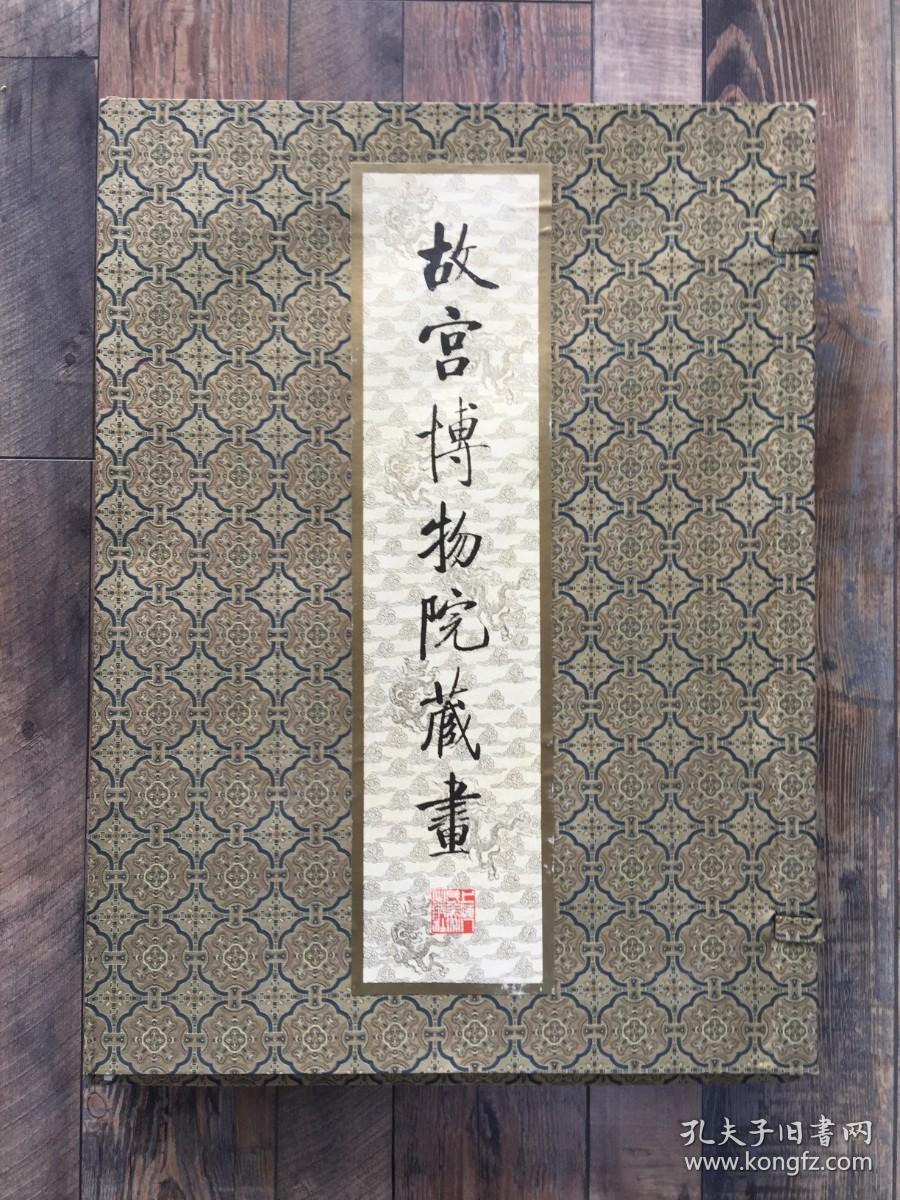 故宫博物院藏畫
孔夫子旧書网
www.kongfz.com